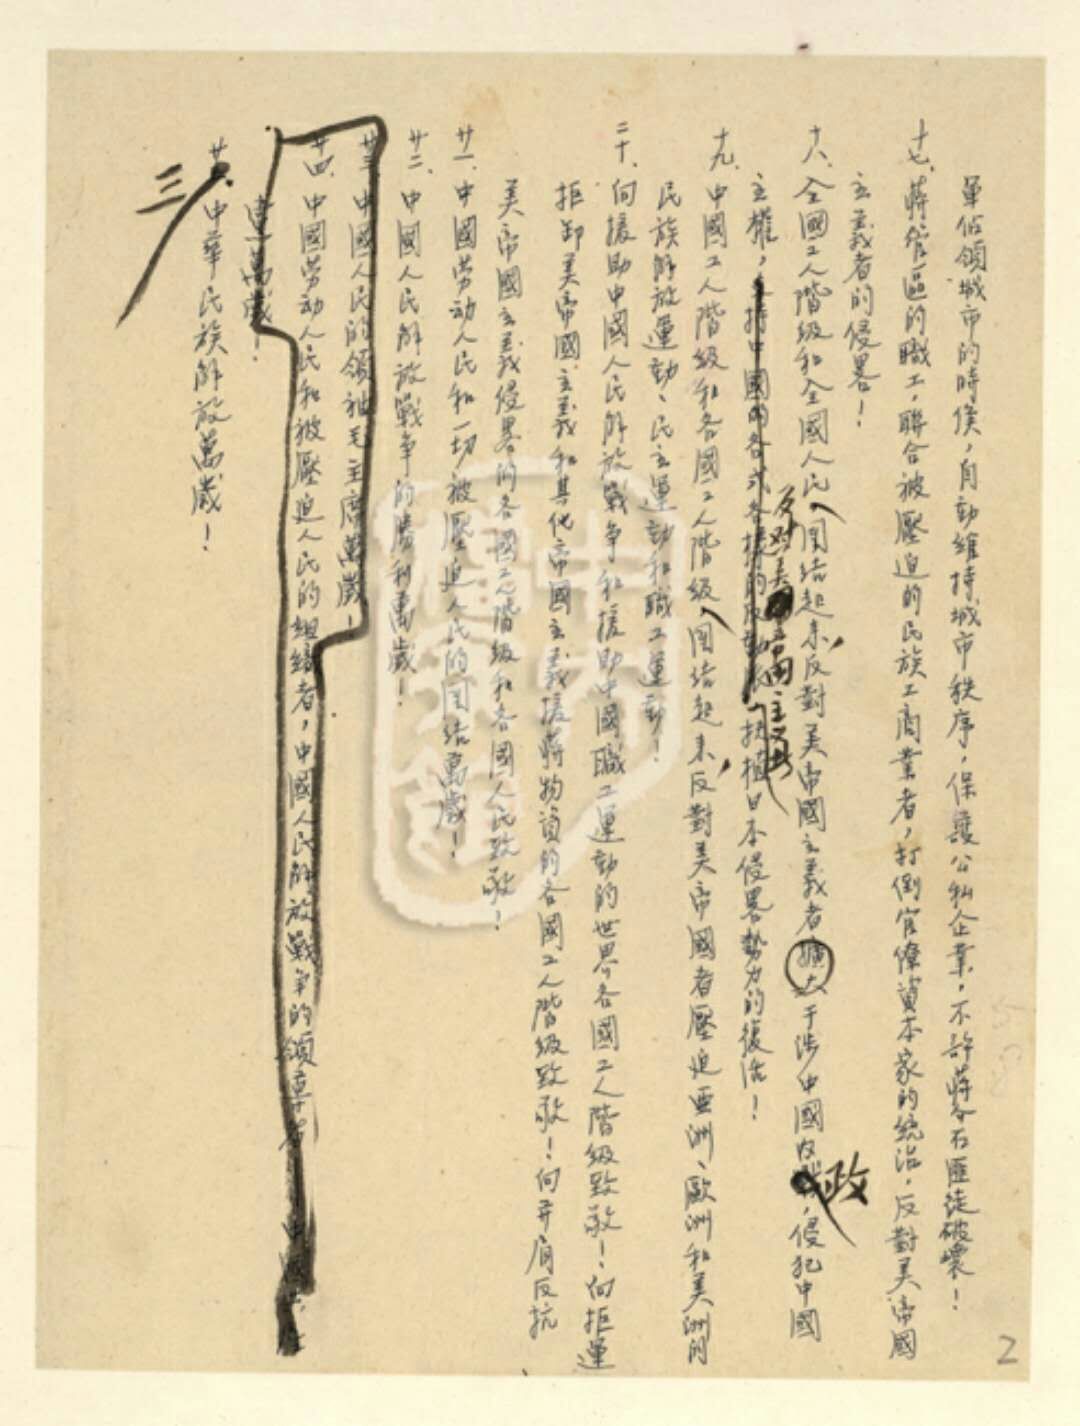 軍佔領城市的時候，自動維持城市秩序，保護公私企業，不許蔣介石匪徒破壞！
十七、蔣管區的職工，聯合被壓迫的民族工商業者，打倒官僚資本家的統治，反對美帝國
主義者的侵畧！
十八、全國工人階級和全國人民，團結起來，反對美帝國主義者擴大干涉中國內政，侵犯中國
主權，支持中國的各式各樣的反動派，扶植日本侵畧勢力的復活！
反對美國帝國主义者
十九、中國工人階級和各國工人階級，團结起來，反對美帝國者壓迫亚洲、歐洲和美洲的
民族解放運動、民主運動和職工運動！
二十、向援助中國人民解放戰争和援助中國職工運動的世界各國工人階級致敬！向拒運
拒卸美帝國主義和其他帝國主義援蔣物資的各國工人階級致敬！向并肩反抗
美帝國主義侵畧的各國工人階級和各國人民致敬！
廿一、中國劳动人民和一切被壓迫人民的团结萬歲！
廿二、中國人民解放戰争的勝利萬歲！
廿三、中國人民的領袖毛主席萬歲！
廿四、中國劳动人民和被壓迫人民的組織者，中國人民解放戰争的領導者 中國共產
党萬歲！
廿三、中華民族解放萬歲！
2
中央檔案館